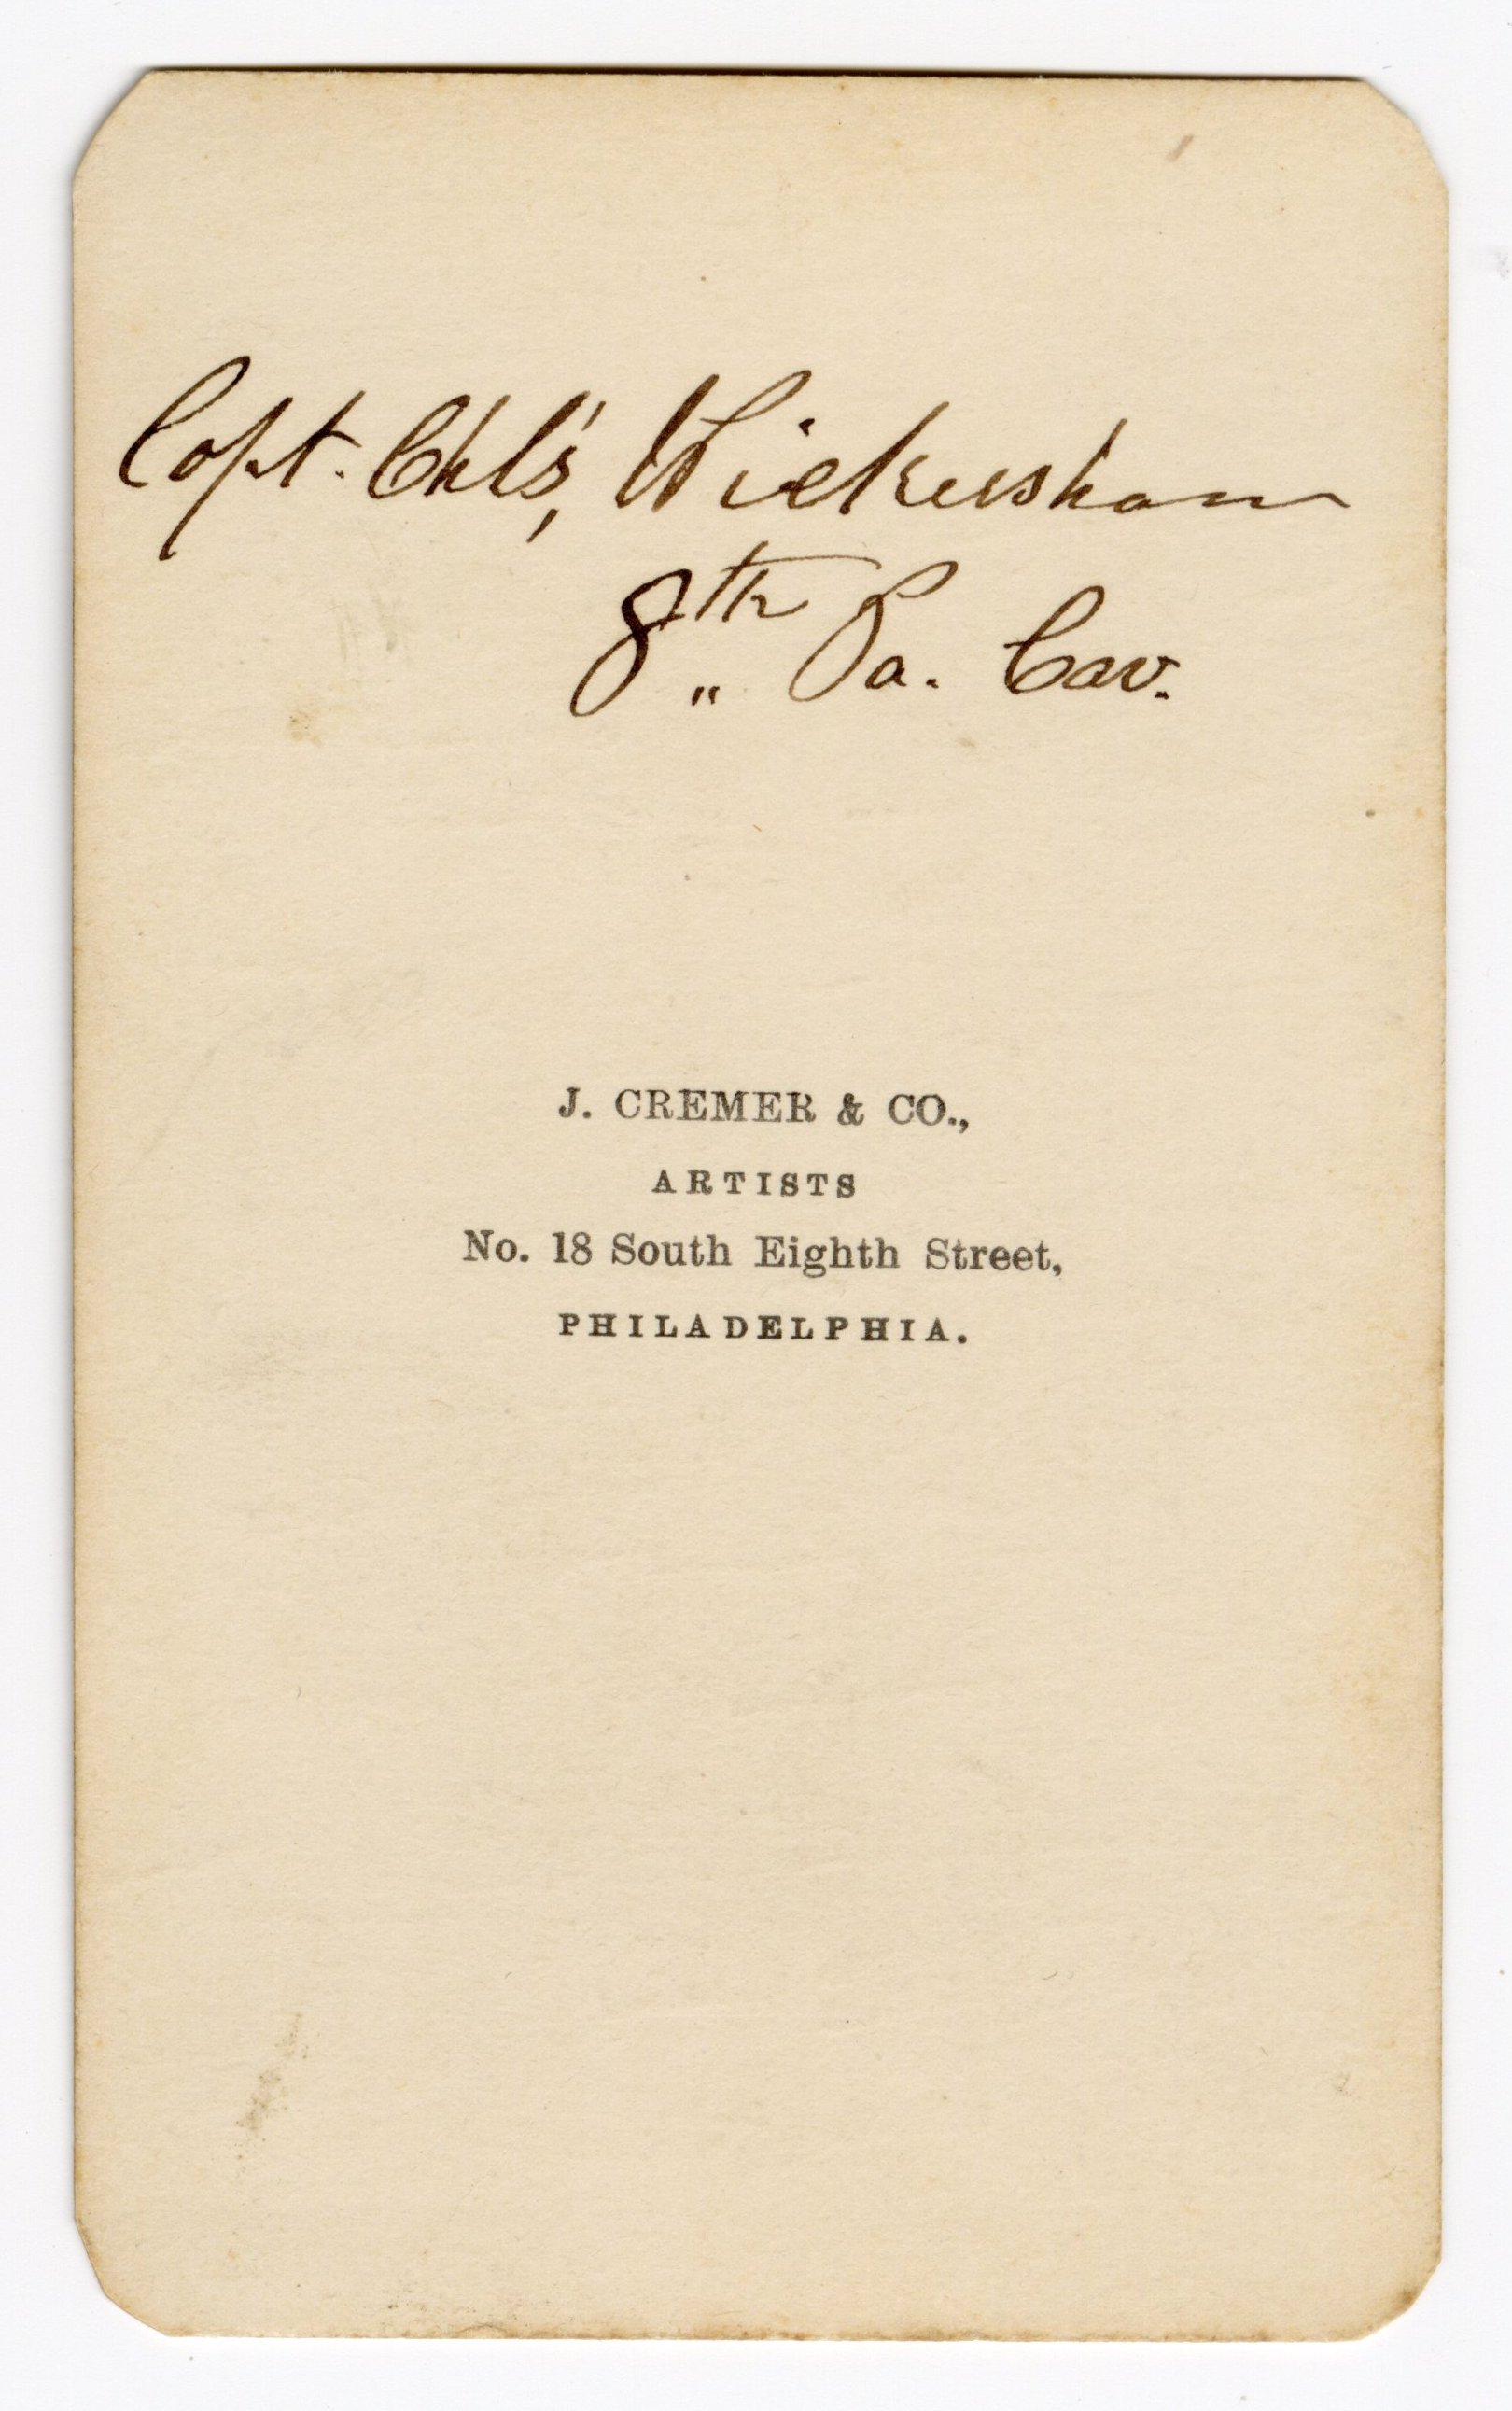 Capt. Chls, Wickersham
8th Pa. Cav.
J. CREMER & CO.,
ARTISTS
No. 18 South Eighth Street,
PHILADELPHIA.